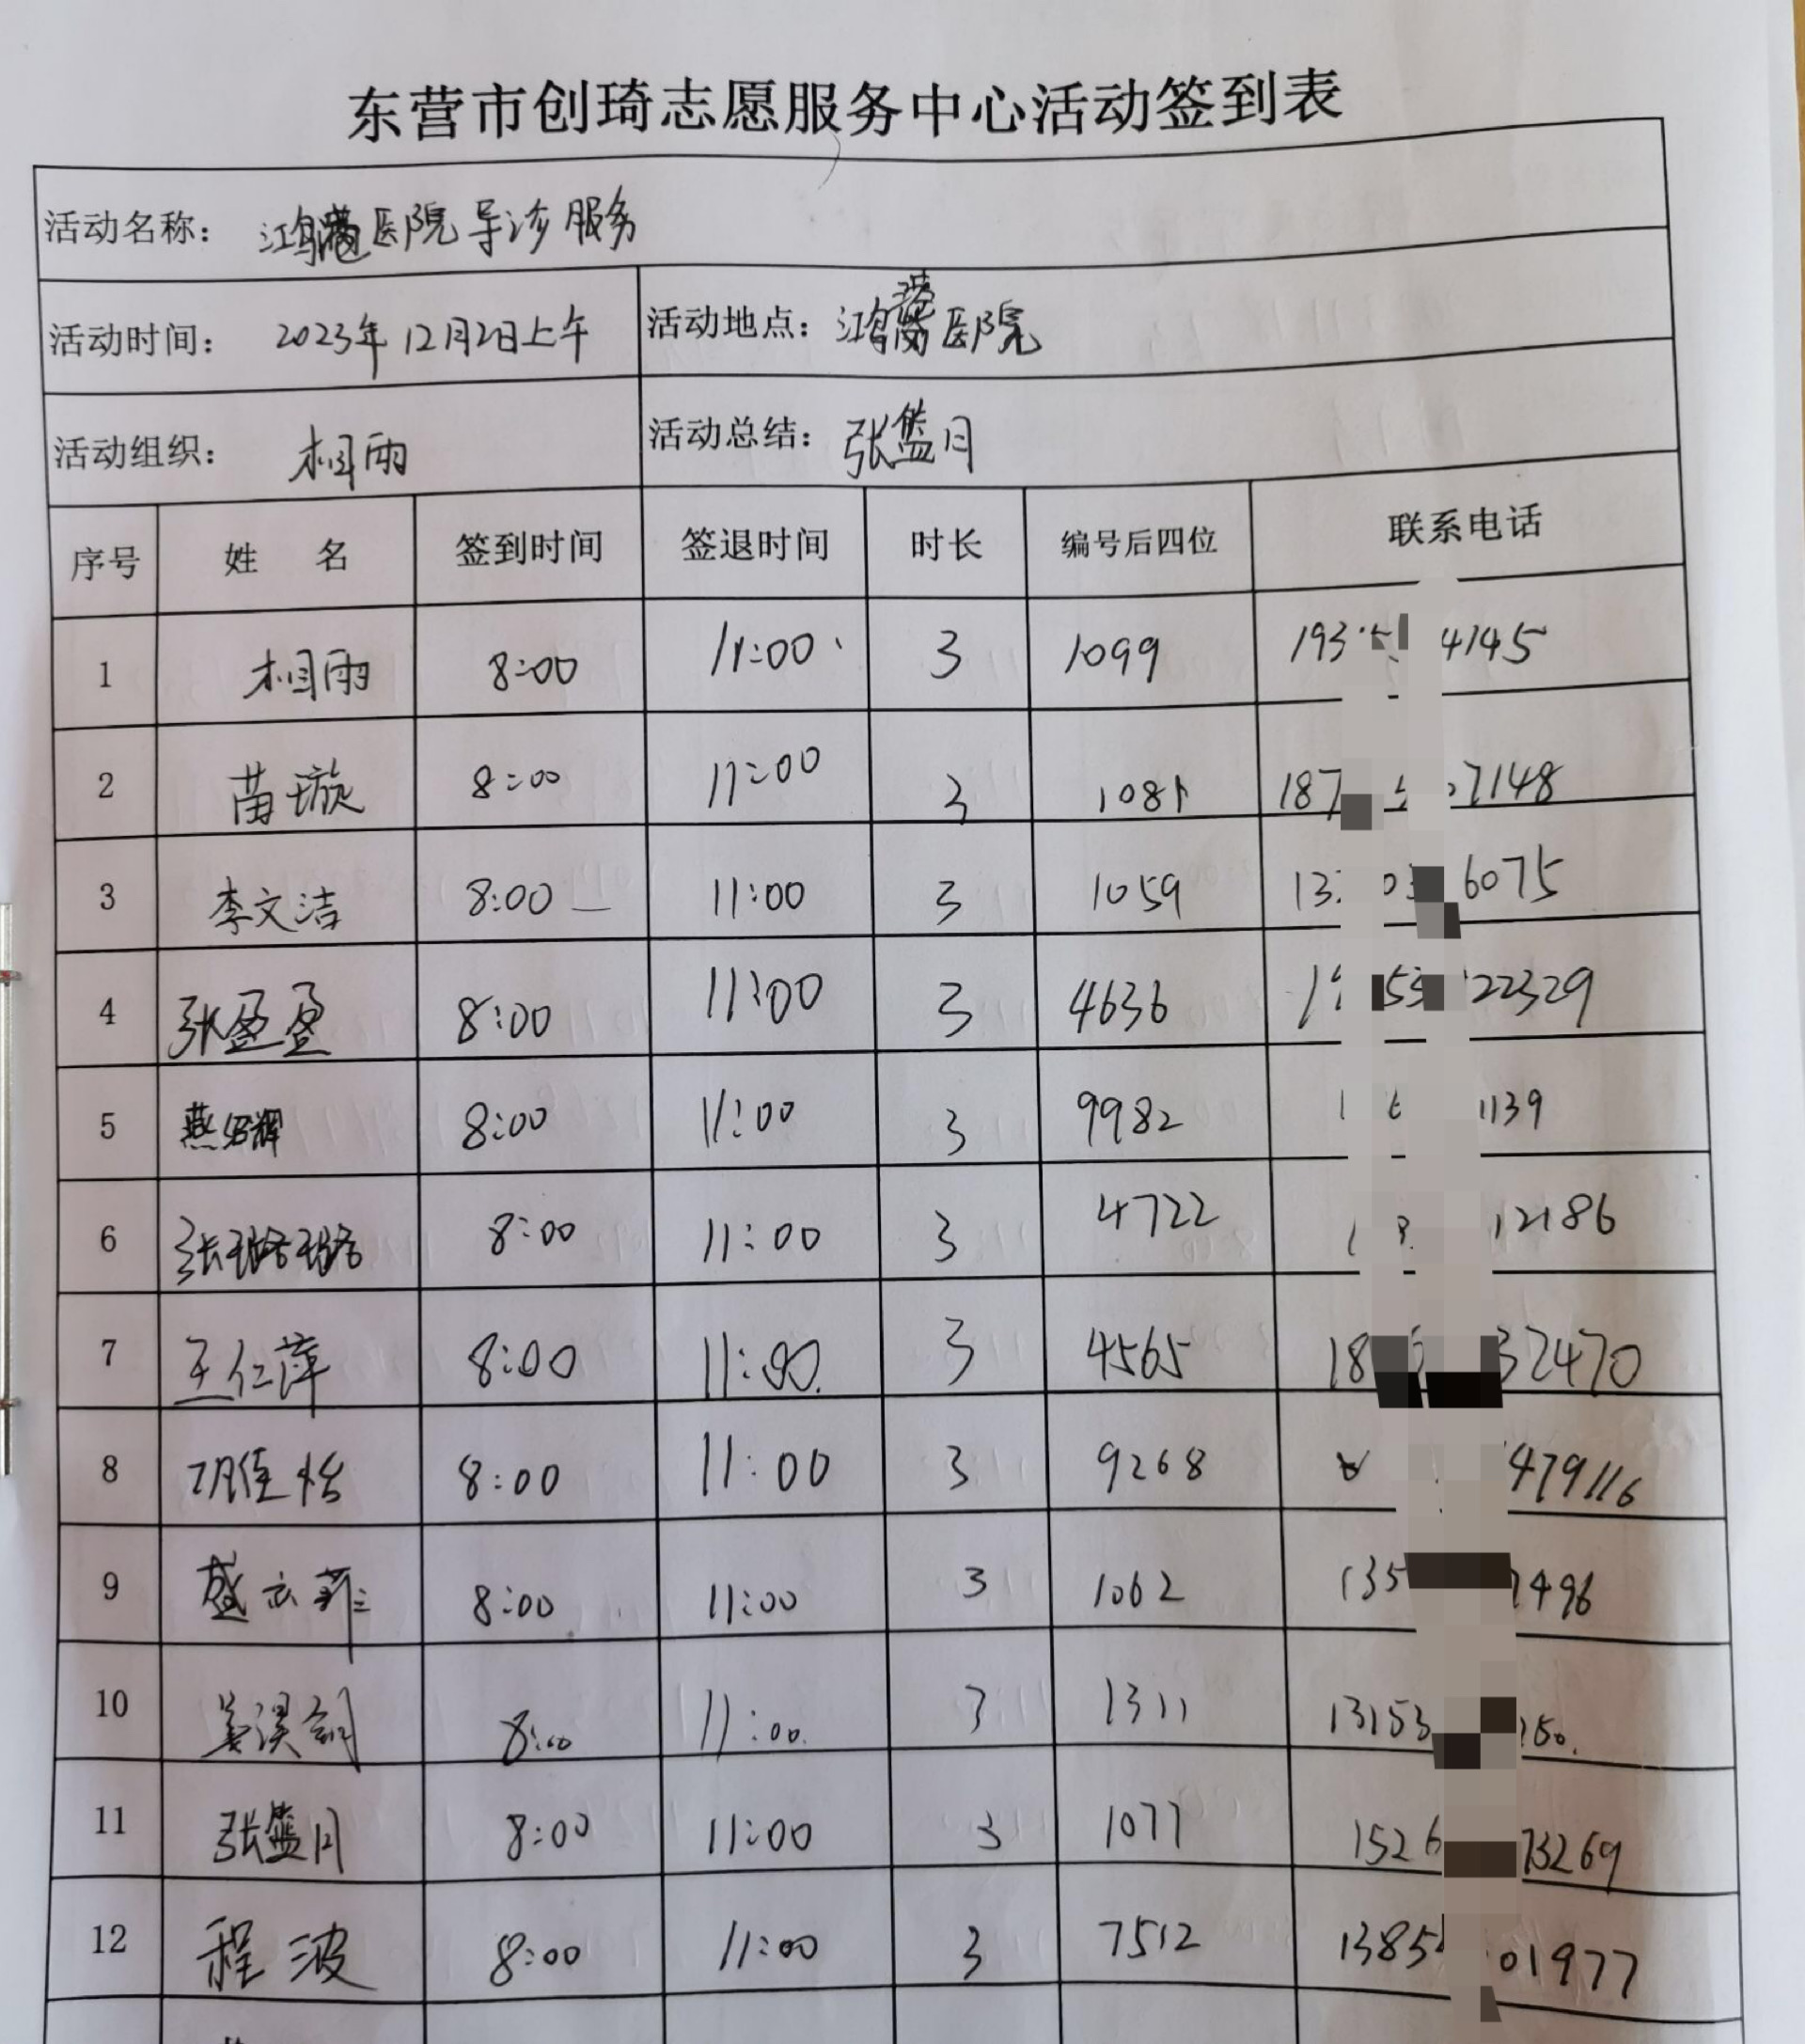 东营市创琦志愿服务中心活动签到表
活动名称： 鸿港医院导诊服务
活动时间： 2023年12月2日上午 活动地点： 鸿港医院
活动组织： 相雨 活动总结： 张篮月
序号 姓 名 签到时间 签退时间 时长 编号后四位 联系电话
1 相雨 8:00 11:00 3 1099 193 4145
2 苗璇 8:00 11:00 3 1081 187 7148
3 李文洁 8:00 11:00 3 1059 13 6075
4 张盈盈 8:00 11:00 3 4636 22329
5 燕绍辉 8:00 11:00 3 9982 1139
6 张璐璐 8:00 11:00 3 4722 12186
7 王仁萍 8:00 11:00 3 4565 18 32470
8 佳怡 8:00 11:00 3 9268 479116
9 盛云菲 8:00 11:00 3 1062 135 496
10 姜淏 8:00 11:00 3 1311 13153 150.
11 张篮月 8:00 11:00 3 1077 1526 73269
12 程波 8:00 11:00 3 7512 1385 01977